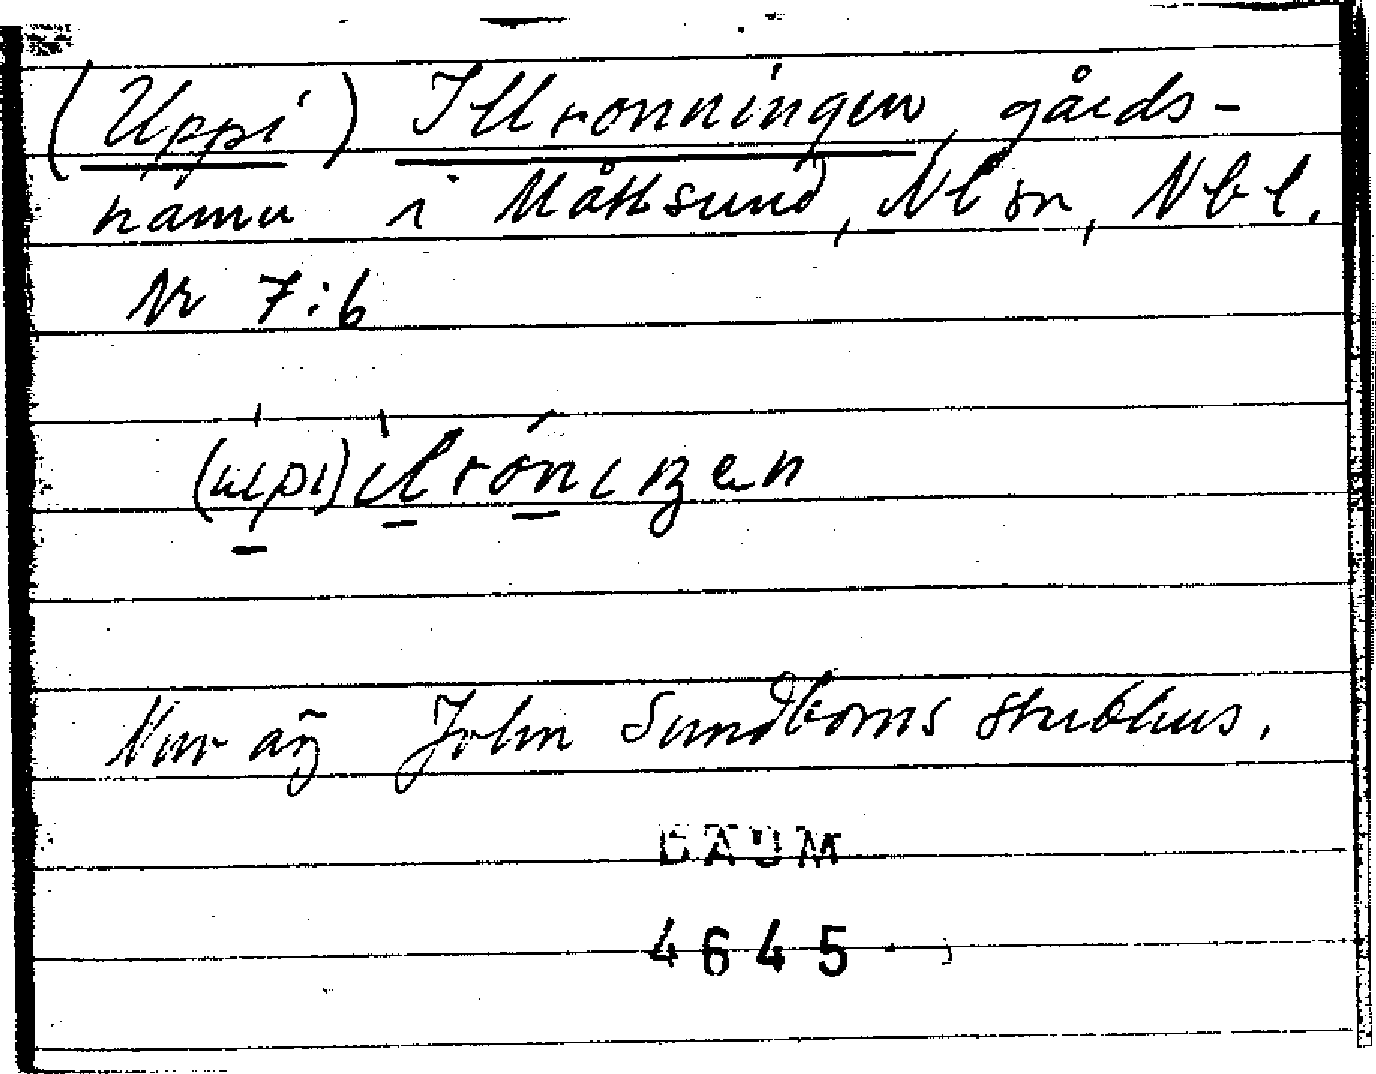 (Uppi) Illronningen, gårds-
namn i Måttsund, Nl sn, Nbl.
Nr 7:6
(upi) ilróniŋen
Nur äg John Sundboms stubhus.
DAUM
4645